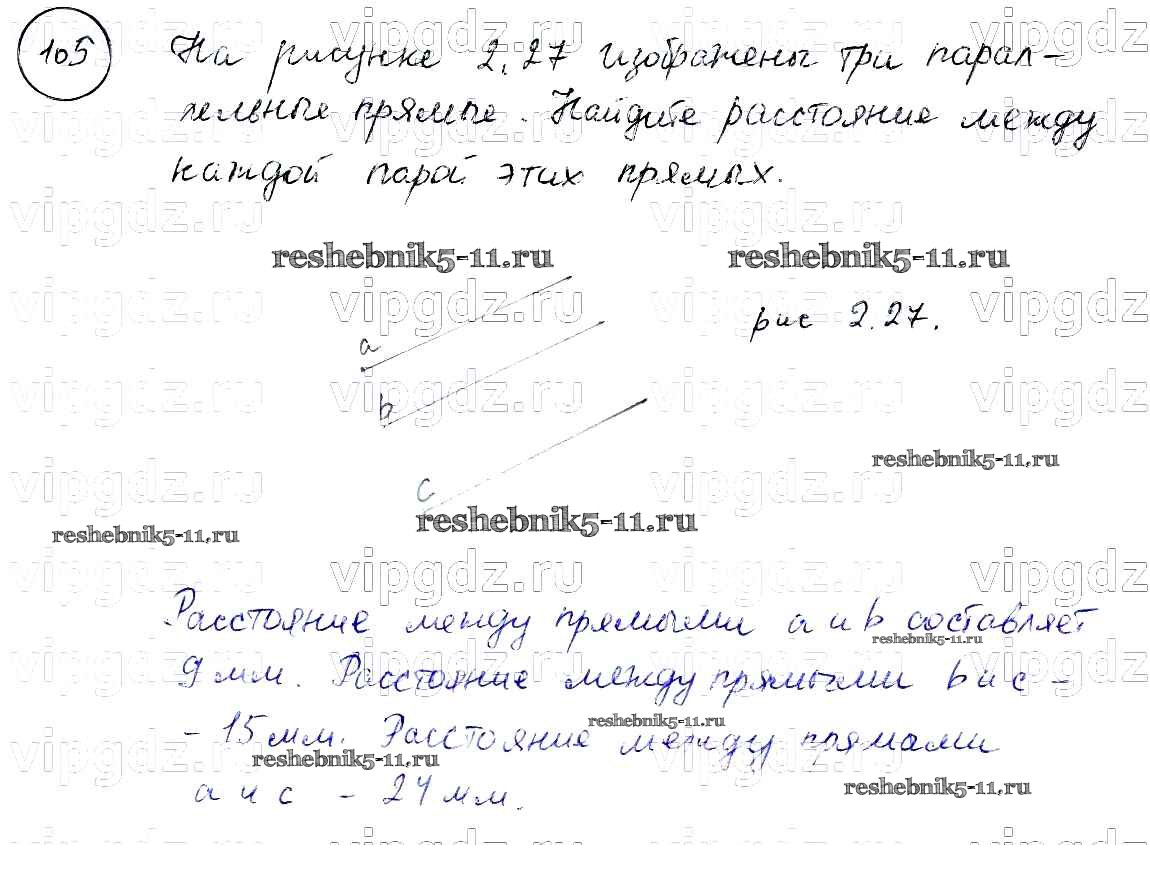 105
На рисунке 2.27 изображены три парал-
лельные прямые. Найдите расстояние между
каждой парой этих прямых.
vipgdz.ru vipgdz.ru vipgdz.ru vipgdz
reshebnik5-11.ru reshebnik5-11.ru
a
рис 2.27.
b
reshebnik5-11.ru
c
reshebnik5-11.ru
reshebnik5-11.ru
Расстояние между прямыми a и b составляет
reshebnik5-11.ru
9 мм. Расстояние между прямыми b и c -
reshebnik5-11.ru
- 15 мм. Расстояние между прямами
reshebnik5-11.ru
reshebnik5-11.ru
a и c - 24 мм.